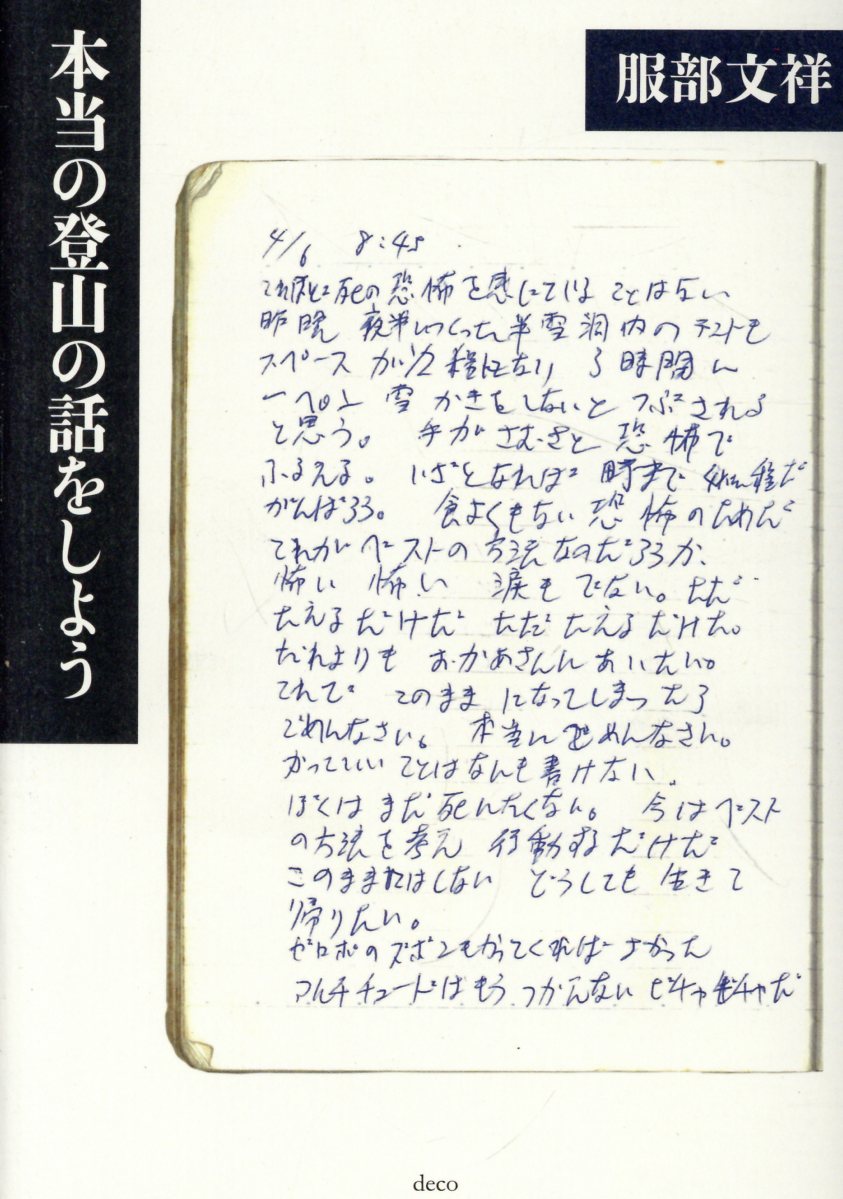 本当の登山の話をしよう
服部文祥
4/6 8:45
これほど死の恐怖を感じていることはない
昨晩 夜半につくった半雪洞内のテントも
スペースが1/2程になり 3時間に
一ぺん 雪かきをしないと つぶされる
と思う。 手が さむさと 恐怖で
ふるえる。 いざとなれば 時まで 程だ
がんばろう。 食よくもない 恐怖のためだ
これがベストの方法なのだろうか、
怖い 怖い 涙もでない。ただ
たえるだけだ ただ たえるだけだ。
だれよりも おかあさんに あいたい。
これで このまま になってしまったら
ごめんなさい。 本当に ごめんなさい。
かっこいい ことはなんも書けない。
ぼくは まだ 死にたくない。 今はベスト
の方法を考え 行動するだけだ
このままにはしない どうしても 生きて
帰りたい。
ゼロポのズボンもかってくればよかった
マルチチュードはもう つかえない ビチャビチャだ
deco